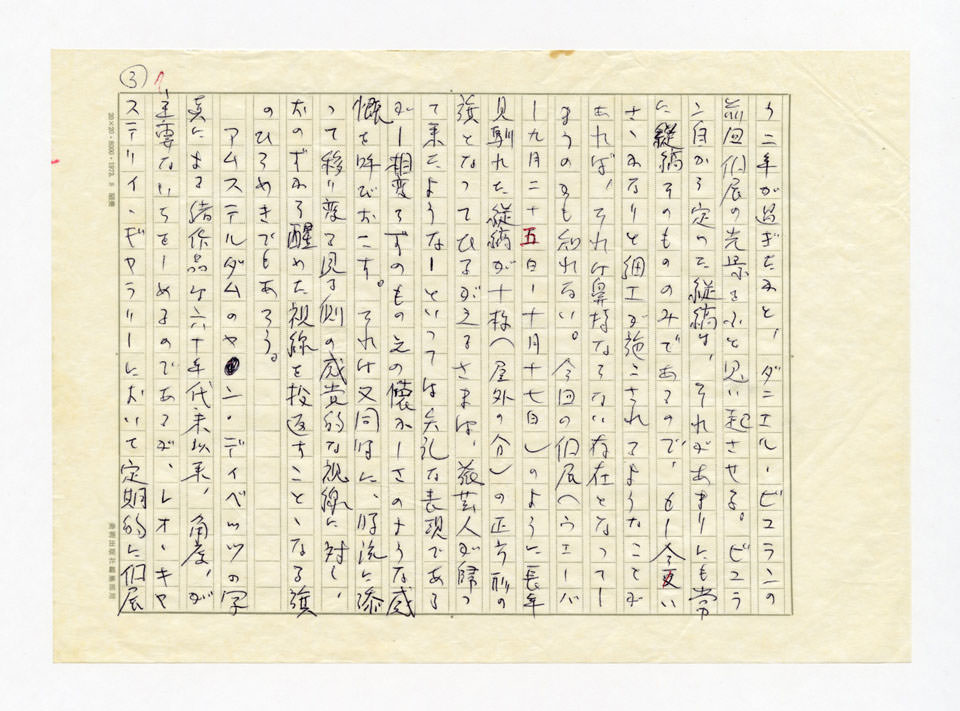 ③
う二年が過ぎたかと、ダニエル・ビュランの
前回個展の光景をふと思い起させる。ビュラ
ン自から定めた縦縞は、それがあまりにも常
に縦縞そのもののみであるので、もし今更い
さゝかなりと細工が施こされてようなことが
あれば、それは鼻持ならない存在となってし
まうのかも知れない。今回の個展へウエーバ
ー九月二十五日ー十月十七日)のように長年
見馴れた縦縞が十枚(屋外の分)の正方形の
旗となってひるがえるさまは、芸人が帰っ
て来たようなーといっては失礼な表現である
がー相変らずのものえの懐かしさのような感
慨を呼びおこす。それは又同時に、時流に添
って移り変る見る側の感覚的な視線に対し、
おのずから醒めた視線を投返すことゝなる旗
のひらめきでもあろう。
アムステルダムのヤン・ディベッツの写
真による諸作品は六十年代末以来、角度、が
主要ないちをしめるのであるが、レオ・キャ
ステリイ・ギャラリーにおいて定期的に個展
20×20